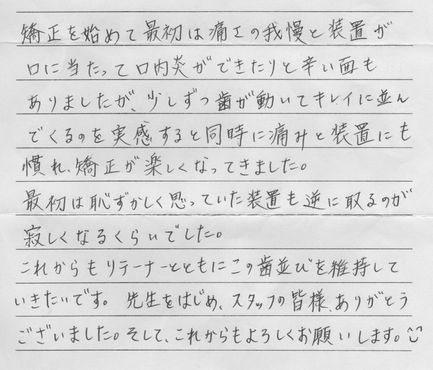 矯正を始めて最初は痛さの我慢と装置が
口に当たって口内炎ができたりと辛い面も
ありましたが、少しずつ歯が動いてキレイに並ん
でくるのを実感すると同時に痛みと装置にも
慣れ、矯正が楽しくなってきました。
最初は恥ずかしく思っていた装置も逆に取るのが
寂しくなるくらいでした。
これからもリテーナーとともにこの歯並びを維持して
いきたいです。先生をはじめ、スタッフの皆様、ありがとう
ございました。そして、これからもよろしくお願いします。